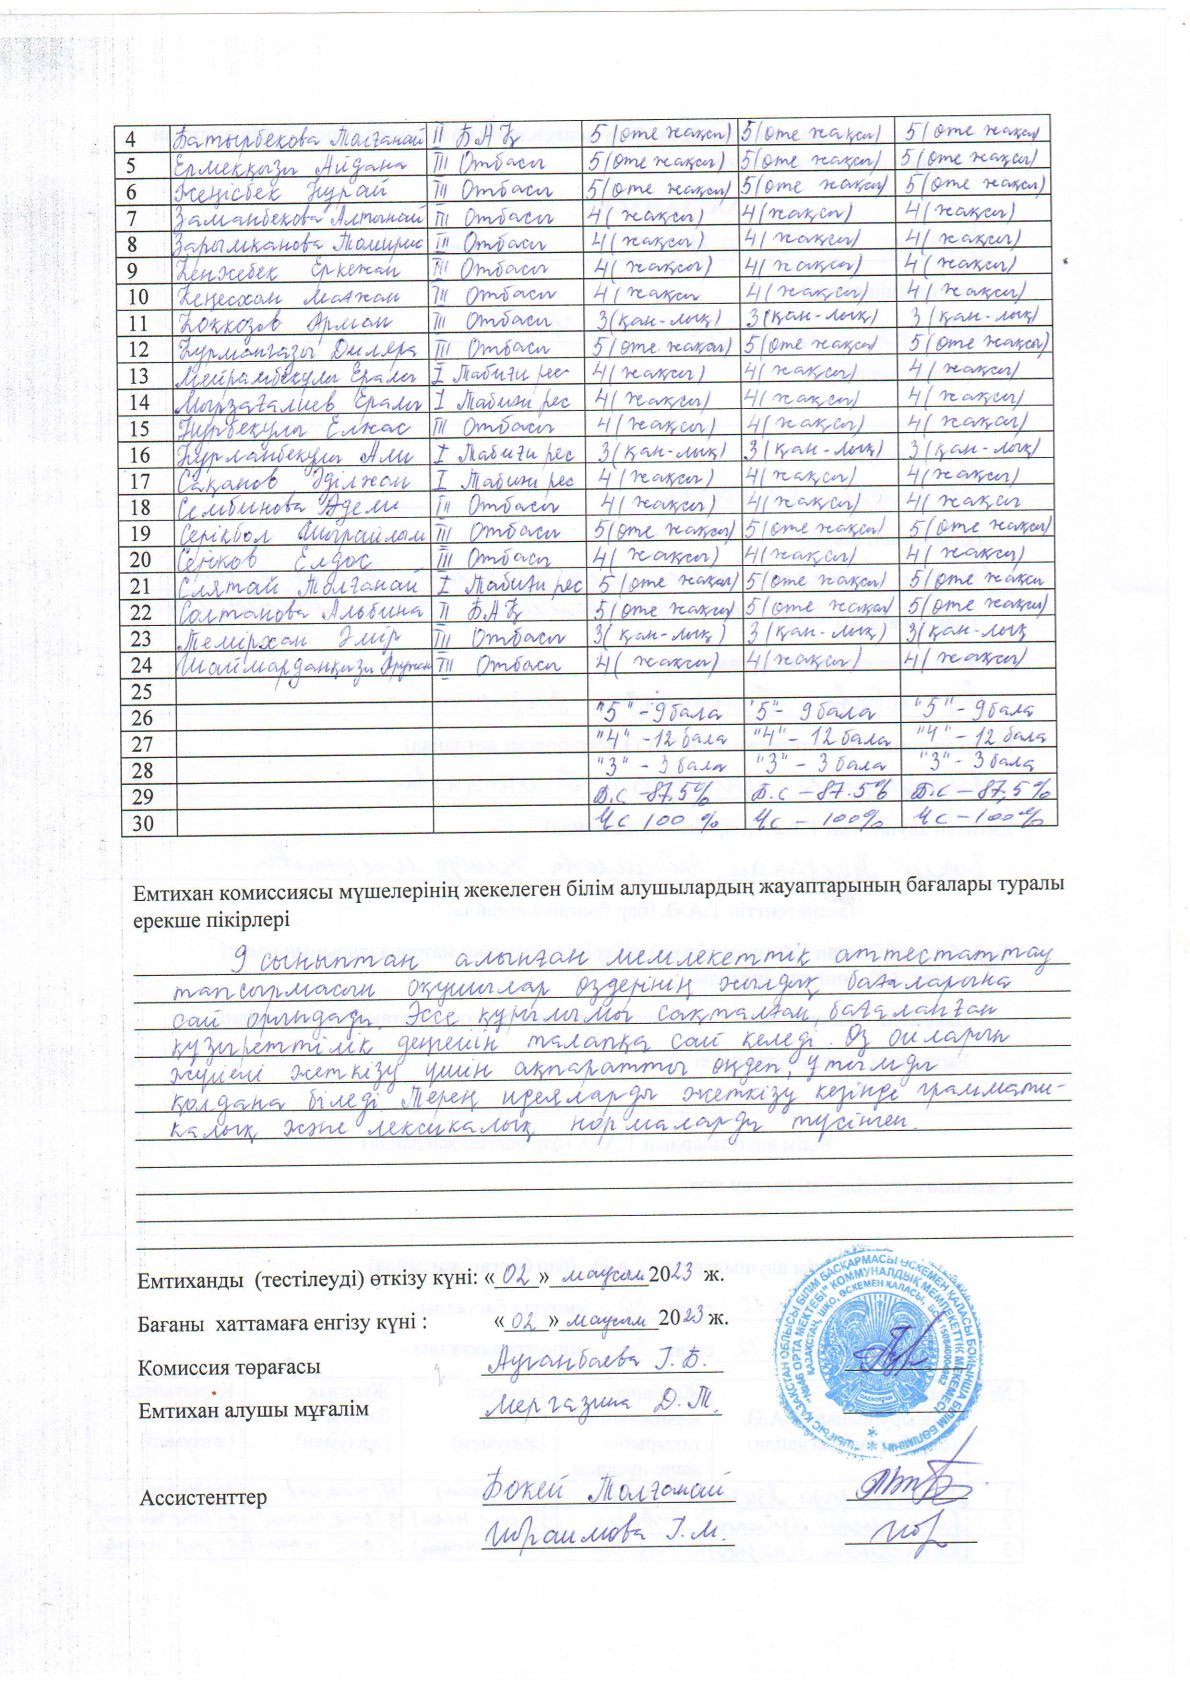 4 Батырбекова Толғанай ІІ БАҚ 5(өте жақсы) 5(өте жақсы) 5(өте жақсы)
5 Ермекқызы Айдана ІІІ Отбасы 5(өте жақсы) 5(өте жақсы) 5(өте жақсы)
6 Жеңісбек Нұрай ІІІ Отбасы 5(өте жақсы) 5(өте жақсы) 5(өте жақсы)
7 Заманбекова Алтынай ІІІ Отбасы 4(жақсы) 4(жақсы) 4(жақсы)
8 Зарымханова Томирис ІІІ Отбасы 4(жақсы) 4(жақсы) 4(жақсы)
9 Кенжебек Еркежан ІІІ Отбасы 4(жақсы) 4(жақсы) 4(жақсы)
10 Кеңесхан Матжан ІІІ Отбасы 4(жақсы 4(жақсы) 4(жақсы)
11 Коккозов Арман ІІІ Отбасы 3(қан-лық) 3(қан-лық) 3(қан-лық)
12 Құрманғазы Дилара ІІІ Отбасы 5(өте жақсы) 5(өте жақсы) 5(өте жақсы)
13 Мейрамбекұлы Ералы І Табиғи рес 4(жақсы) 4(жақсы) 4(жақсы)
14 Мырзағалиев Ералы І Табиғи рес 4(жақсы) 4(жақсы) 4(жақсы)
15 Нұрбекұлы Елжас ІІІ Отбасы 4(жақсы) 4(жақсы) 4(жақсы)
16 Нұрманбекұлы Али І Табиғи рес 3(қан-лық) 3(қан-лық) 3(қан-лық)
17 Сақанов Әділжан І Табиғи рес 4(жақсы) 4(жақсы) 4(жақсы)
18 Сембинова Адели ІІІ Отбасы 4(жақсы) 4(жақсы) 4(жақсы
19 Серікбол Шырайлым ІІІ Отбасы 5(өте жақсы) 5(өте жақсы) 5(өте жақсы)
20 Серіков Елдос ІІІ Отбасы 4(жақсы) 4(жақсы) 4(жақсы)
21 Слятай Толғанай І Табиғи рес 5(өте жақсы) 5(өте жақсы) 5(өте жақсы
22 Солтанова Альбина ІІ БАҚ 5(өте жақсы) 5(өте жақсы) 5(өте жақсы)
23 Темірхан Әмір ІІІ Отбасы 3(қан-лық) 3(қан-лық) 3(қан-лық
24 Шаймарданқызы Аружан ІІІ Отбасы 4(жақсы) 4(жақсы) 4(жақсы)
25
26 "5" - 9 бала "5" - 9 бала "5" - 9 бала
27 "4" - 12 бала "4" - 12 бала "4" - 12 бала
28 "3" - 3 бала "3" - 3 бала "3" - 3 бала
29 Б.с - 87.5% Б.с - 87.5% Б.с - 87,5%
30 Үс 100 % Үс - 100% Үс - 100%
Емтихан комиссиясы мүшелерінің жекелеген білім алушылардың жауаптарының бағалары туралы
ерекше пікірлері
9 сыныптан алынған мемлекеттік аттестаттау
тапсырмасын оқушылар өздерінің жылдық бағаларына
сай орындады. Эссе құрылымы сақталған, бағаланған
құзыреттілік деңгейін талапқа сай келеді. Өз ойларын
жүйелі жеткізу үшін ақпаратты өңдеп, ұтымды
қолдана біледі. Терең идеяларды жеткізу кезінде граммати-
калық және лексикалық нормаларды түсінген.
Емтиханды (тестілеуді) өткізу күні: «02» маусым 2023 ж.
Бағаны хаттамаға енгізу күні : «02» маусым 2023 ж.
Комиссия төрағасы Ауганбаева Г.Б.
Емтихан алушы мұғалім Мергазина Д.Т.
Ассистенттер Бокей Толғанай
Ибраимова Г.М.